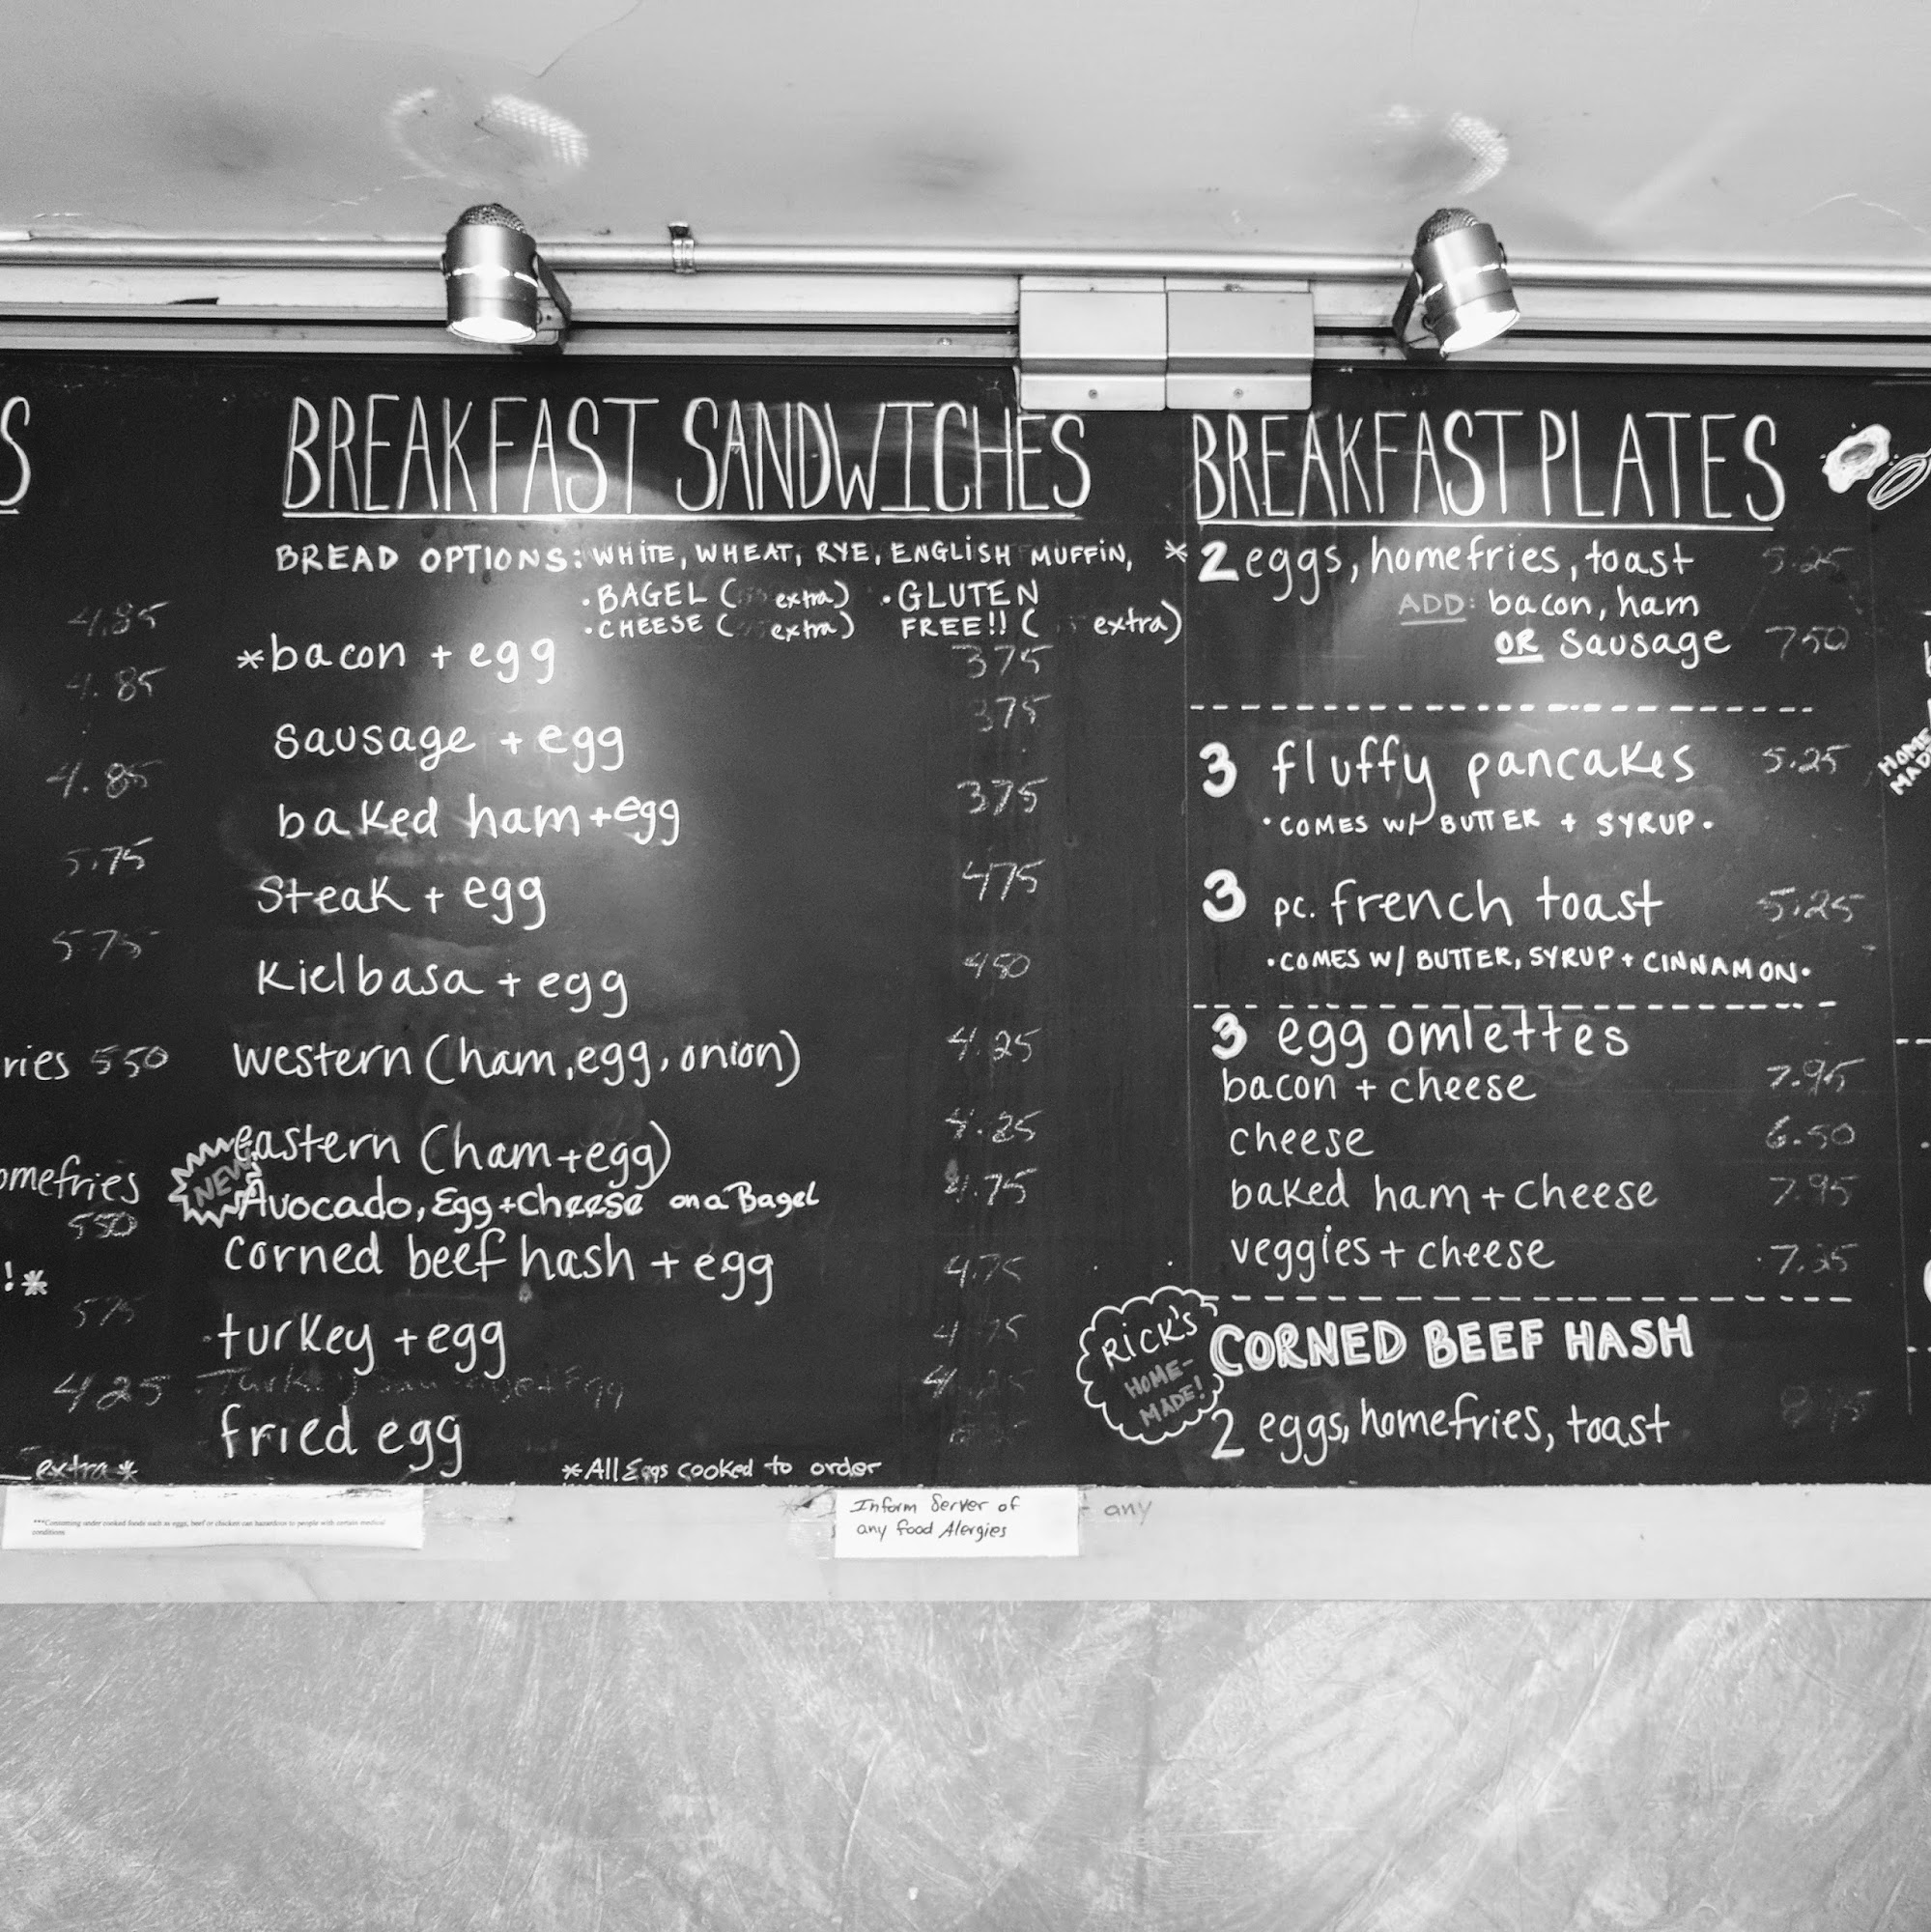 S
4.85
4.85
4.85
5.75
575
ries 550
omefries
550
!*
575
425
extra*
BREAKFAST SANDWICHES
BREAD OPTIONS: WHITE, WHEAT, RYE, ENGLISH MUFFIN,
• BAGEL ( extra) • GLUTEN
• CHEESE ( extra) FREE!! ( extra)
*bacon + egg 375
sausage + egg 375
baked ham + egg 375
steak + egg 475
Kielbasa + egg 450
western (ham, egg, onion) 4.25
eastern (ham + egg) 4.25
NEW Avocado, Egg + Cheese on a Bagel 4.75
corned beef hash + egg 4.75
turkey + egg 4.75
Turkey Sausage + Egg
fried egg
*All Eggs cooked to order
BREAKFAST PLATES
* 2 eggs, homefries, toast 5.25
ADD: bacon, ham
OR sausage 750
3 fluffy pancakes 5.25
• COMES W/ BUTTER + SYRUP •
3 pc. french toast 5.25
• COMES W/ BUTTER, SYRUP + CINNAMON •
3 egg omlettes
bacon + cheese 7.95
cheese 6.50
baked ham + cheese 7.95
veggies + cheese 7.25
RICK'S
HOME-
MADE!
CORNED BEEF HASH
2 eggs, homefries, toast
HOME
MAD
***Consuming under cooked foods such as eggs, beef or chicken can hazardous to people with certain medical
conditions
Inform Server of
any food Alergies
any